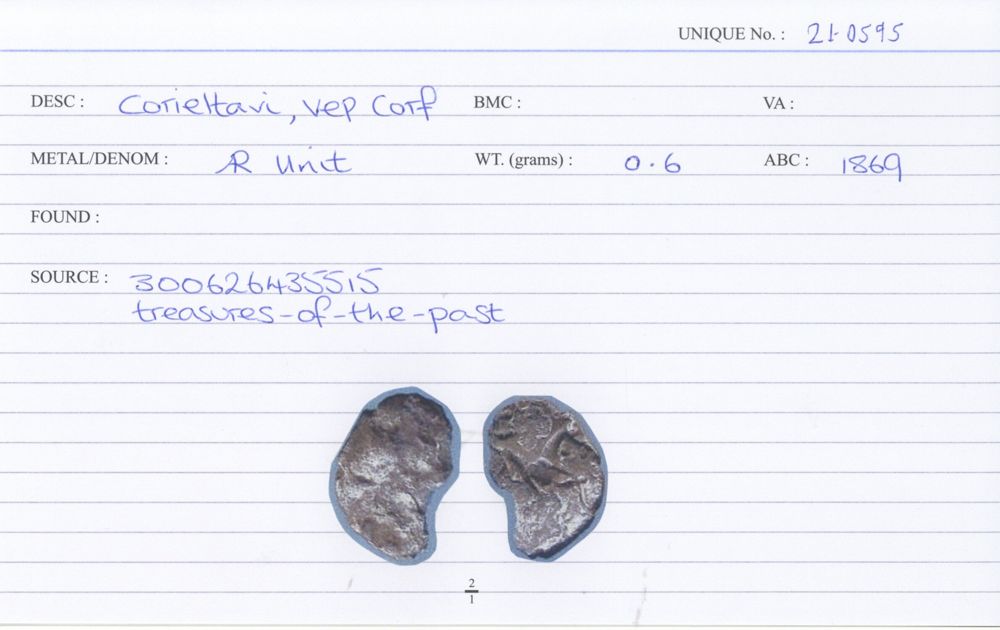 UNIQUE No. : 21-0595
DESC : Corieltavi, Vep Corf BMC : VA :
METAL/DENOM : AR Unit WT. (grams) : 0.6 ABC : 1869
FOUND :
SOURCE : 300626435515
treasures-of-the-past
2
1